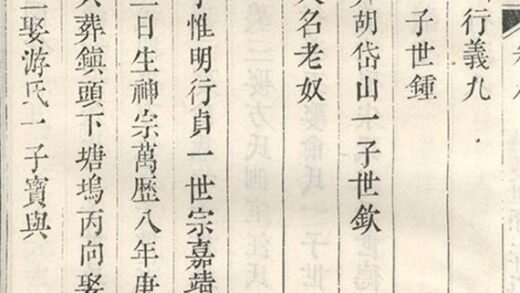 行義九
子世鍾
葬胡岱山一子世欽
名老奴
子惟明行貞一世宗嘉靖
二日生神宗萬歷八年庚
葬鎮頭下塘塢丙向娶
娶游氏一子寶與